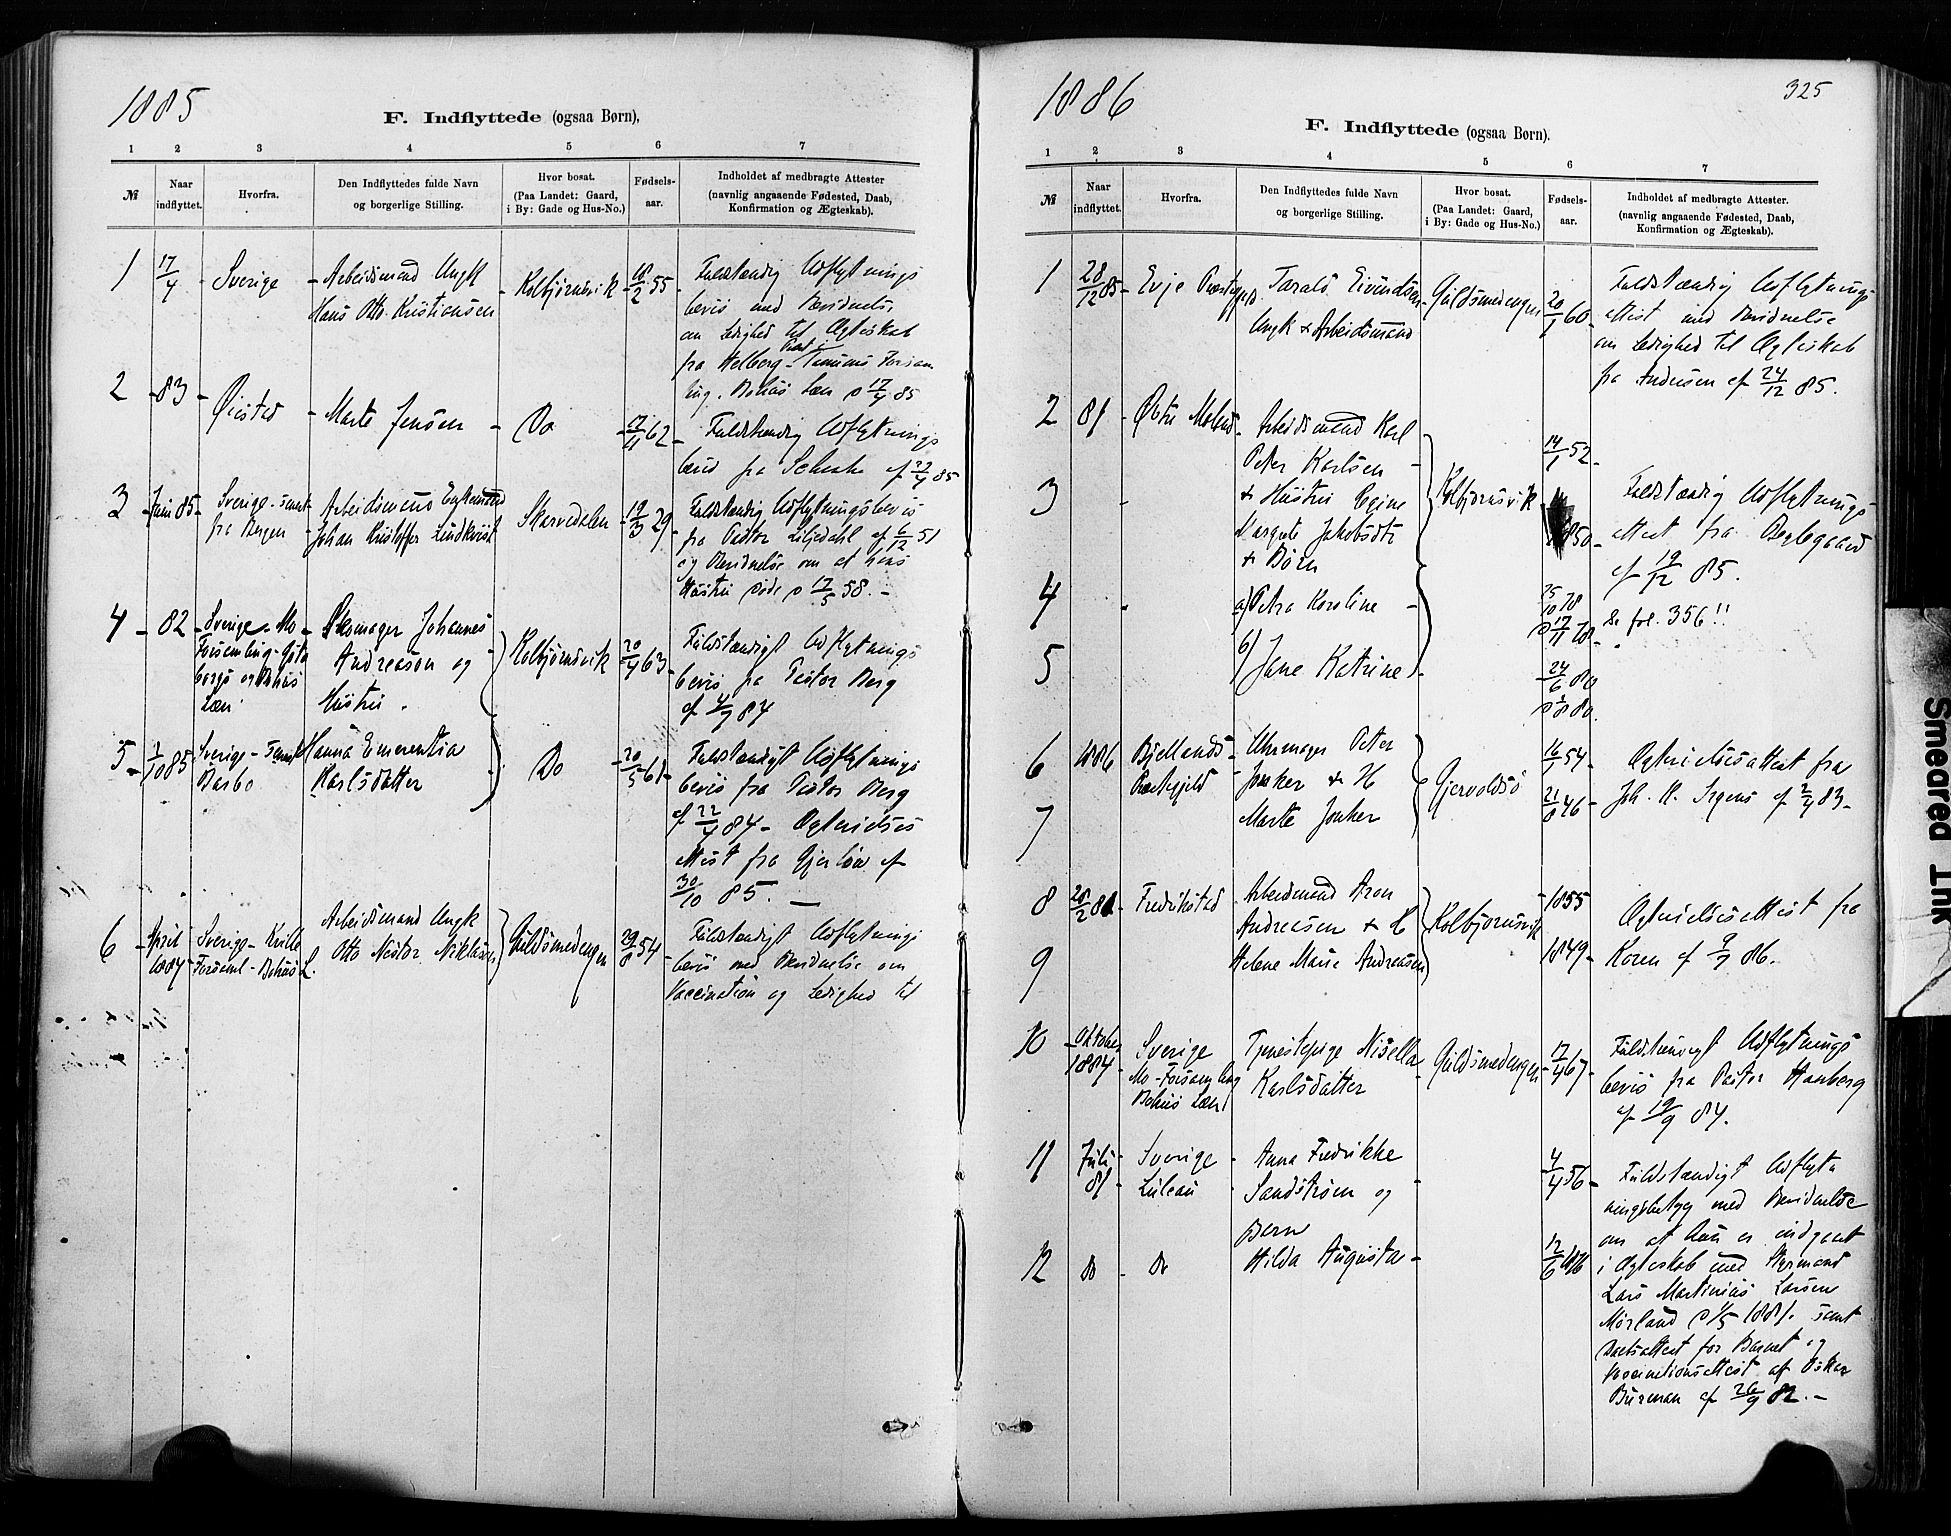 1885
F. Indflyttede (ogsaa Børn),
1 2 3 4 5 6 7
№
Naar indflyttet.
Hvorfra.
Den Indflyttedes fulde Navn
og borgerlige Stilling.
Hvor bosat.
(Paa Landet: Gaard,
i By: Gade og Hus-No.)
Fødsels-
aar.
Indholdet af medbragte Attester
(navnlig angaaende Fødested, Daab,
Konfirmation og Ægteskab).
1 17/4 - Sverige - Arbeidsmand Ungk
Hans Otto Kristiansen - Kolbjørnsvik - 18/2 55 - Fuldstændig Udflytnings
bevis med Bevidnelse
om Ledighed til Ægteskab
fra Helberg - Tanums Forsam
ling. Bohus Læn d 17/4 85
2 - 83 - Øiestad - Marte Jensen - Do - 62 - Fuldstændig Udflytnings
bevis fra 85
3 Juni 85 - Sverige - samt
fra Bergen - Arbeidsmand Enkemand
Johan Kristoffer Lindkvist - Skarvedalen - 19/3 29 - Fuldstændig Udflytningsbevis
fra Pastor Liljedahl af 6/12 51
og Bevidnelse om at hans
Hustru døde d 17/5 58. -
4 - 82 - Sverige - Mo -
Forsamling - Gøte
borgs og Bohus
Læn - Skomager Johannes
Andreason og
Hustru - Kolbjørnsvik - 20/4 63 - Fuldstændigt Udflytnings
bevis fra Pastor Berg
af 4/7 84
5 - 1/10 85 - Sverige - samt
Barbo - Hanna Emerentia
Karlsdatter - Do - 20/5 61 - Fuldstændigt Udflytnings
bevis fra Pastor Berg
af 22/4 84 - Ægtevielses
attest fra Gjerløw af
30/10 85. -
6 - April
1884 - Sverige - Kville
Forsaml - Bohus L. Arbeidsmand Ungk
Otto Nestor Niklasen - Guldsmedengen - 29/8 54 - Fuldstændigt Udflytnings
bevis med Bevidnelse om
Vaccination og Ledighed til
1886
325
F. Indflyttede (ogsaa Børn).
1 2 3 4 5 6 7
№
Naar
indflyttet.
Hvorfra.
Den Indflyttedes fulde Navn
og borgerlige Stilling.
Hvor bosat.
(Paa Landet: Gaard,
i By: Gade og Hus-No.)
Fødsels-
aar.
Indholdet af medbragte Attester.
(navnlig angaaende Fødested, Daab,
Konfirmation og Ægteskab).
1 28/12 85 - Evje Præstegjeld - Tarald Eivindsen
Ungk & Arbeidsmand - Guldsmedengen 20/1 60 - Fuldstændig Udflytnings
attest med Bevidnelse
om Ledighed til Ægteskab
fra Andersen af 24/12 85.
2 81 - Østre Moland - Arbeidsmand Karl
Peter Karlsen - Kolbjørnsvik 14/1 52 -
3 - & Hustru Regine
Margrete Jakobsdtr
& Børn 1850 - Fuldstændig Udflytnings
attest fra Boglegaard
af 19/12 85.
4 - a) Petra Karoline - 25/10 78
d 17/11 78 - Se fol. 356!!
5 b) Jane Katrine - 24/6 80
d 1/8 80.
6 1886 Bjellands
Præstegjeld - Uhrmager Peter
Jonker & H - Gjervoldsø 16/1 54 - Ægtevielsesattest fra
7 Marte Jonker 21/8 46 - Joh. H. Irgens af 2/4 83 -
8 28/2 81 - Fredrikstad - Arbeidsmand Aron
Andreasen & H - Kolbjørnsvik - 1855 Ægtevielsesattest fra
9 Helene Marie Andreasen 1849 - Koren af 9/7 86.
10 - Oktober
1884 - Sverige
Mo-Forsamling
Bohus Læn Tjenestepige Nisella
Karlsdatter - Guldsmedengen - 17/4 67 - Fuldstændigt Udflytnings
bevis fra Pastor Hanberg
af 19/9 84.
11 Juli
81 - Sverige
Luleaa - Anna Fredrikke
Sandstrøm og
Barn - 4/4 56 - Fuldstændigt Udflyt
ningsbetyg med Bevidnelse
om at hun er indgaaet
12 Do - Do Hilda Augusta - 12/6 1876 i Ægteskab med Styrmand
Lars Martinius Larsen
Mørland d 1/5 1881. samt
Daabsattest for Barnet og
Vaccinationsattest af Oskar
Burman af 26/9 82. -
Smeared Ink